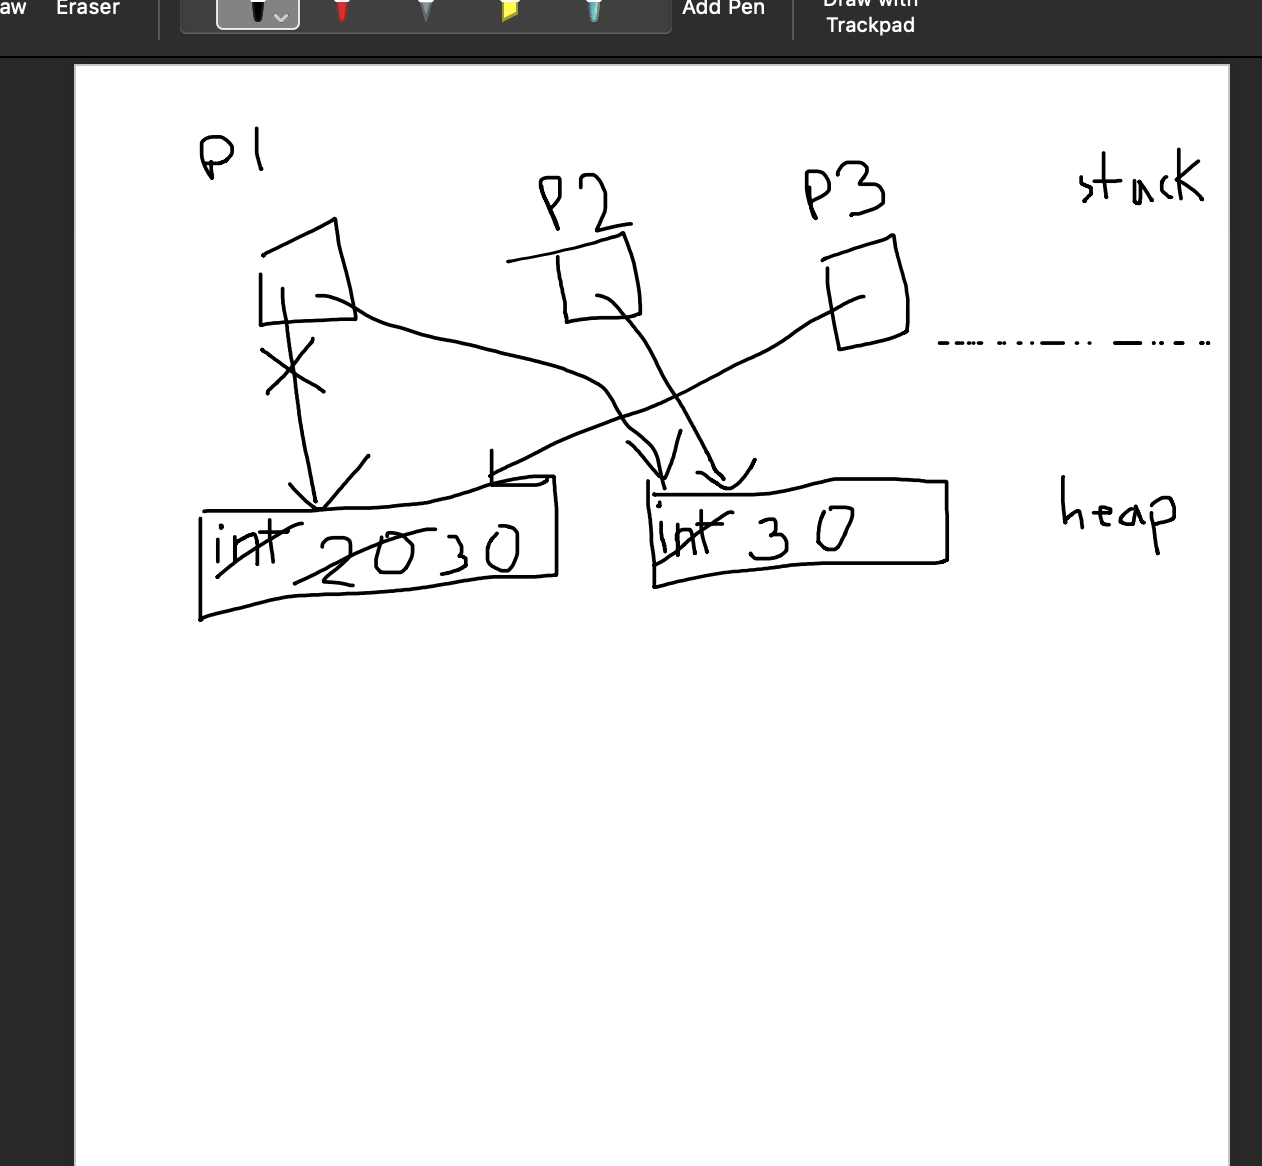 aw Eraser Add Pen Draw with
Trackpad
p1
P2
P3
stack
heap
int 20 30
int 30